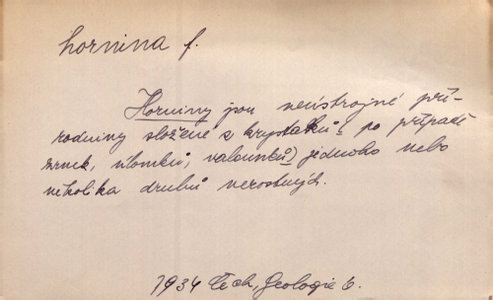 hornina f.
Horniny jsou neústrojné pří-
rodniny složené z krystalků (po případě
zrnek, úlomků, valounků) jednoho nebo
několika druhů nerostných.
1934 Čech, Geologie 6.